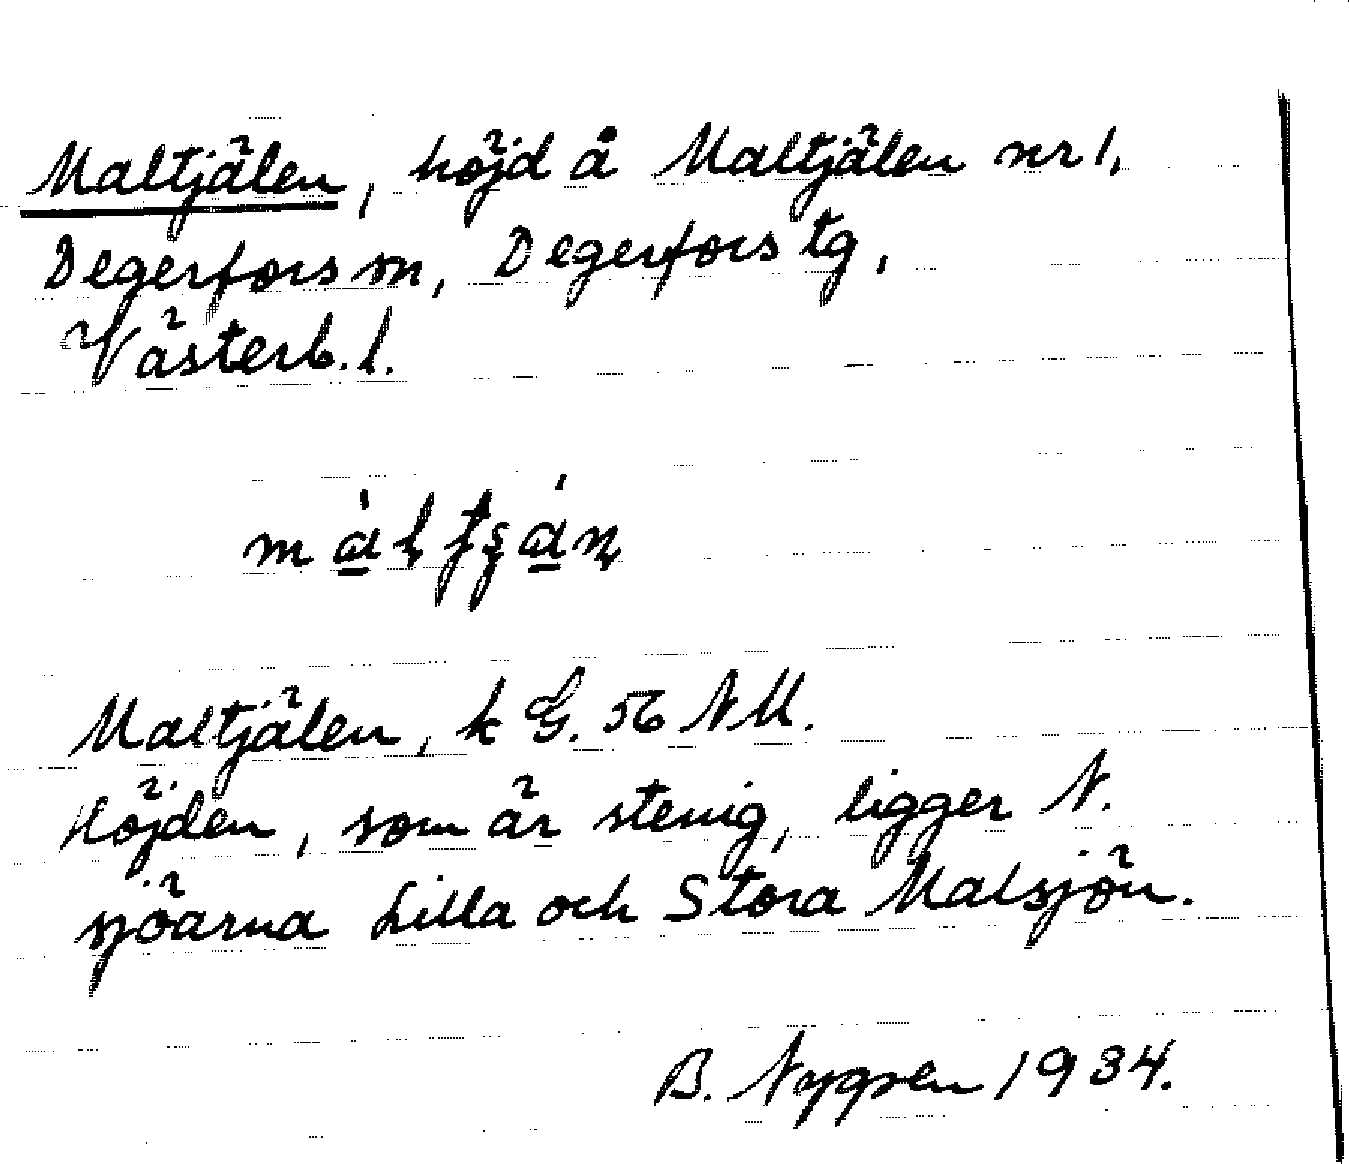 Maltjälen, höjd å Maltjälen nr 1,
Degerfors sn, Degerfors tg,
Västerb. l.
Maltjälen, k G. 56 NM.
Höjden, som är stenig, ligger N.
sjöarna Lilla och Stora Malsjön.
B. Nygren 1934.